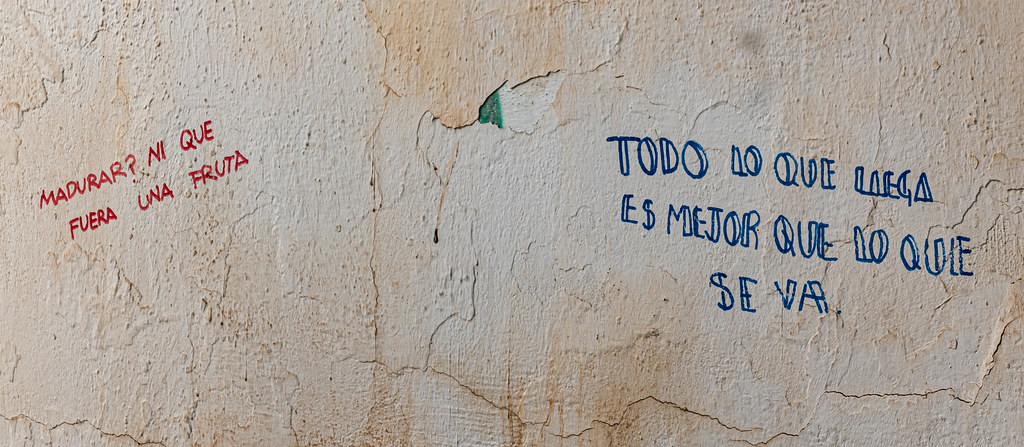 MADURAR? NI QUE
FUERA UNA FRUTA
TODO LO QUE LLEGA
ES MEJOR QUE LO QUE
SE VA.